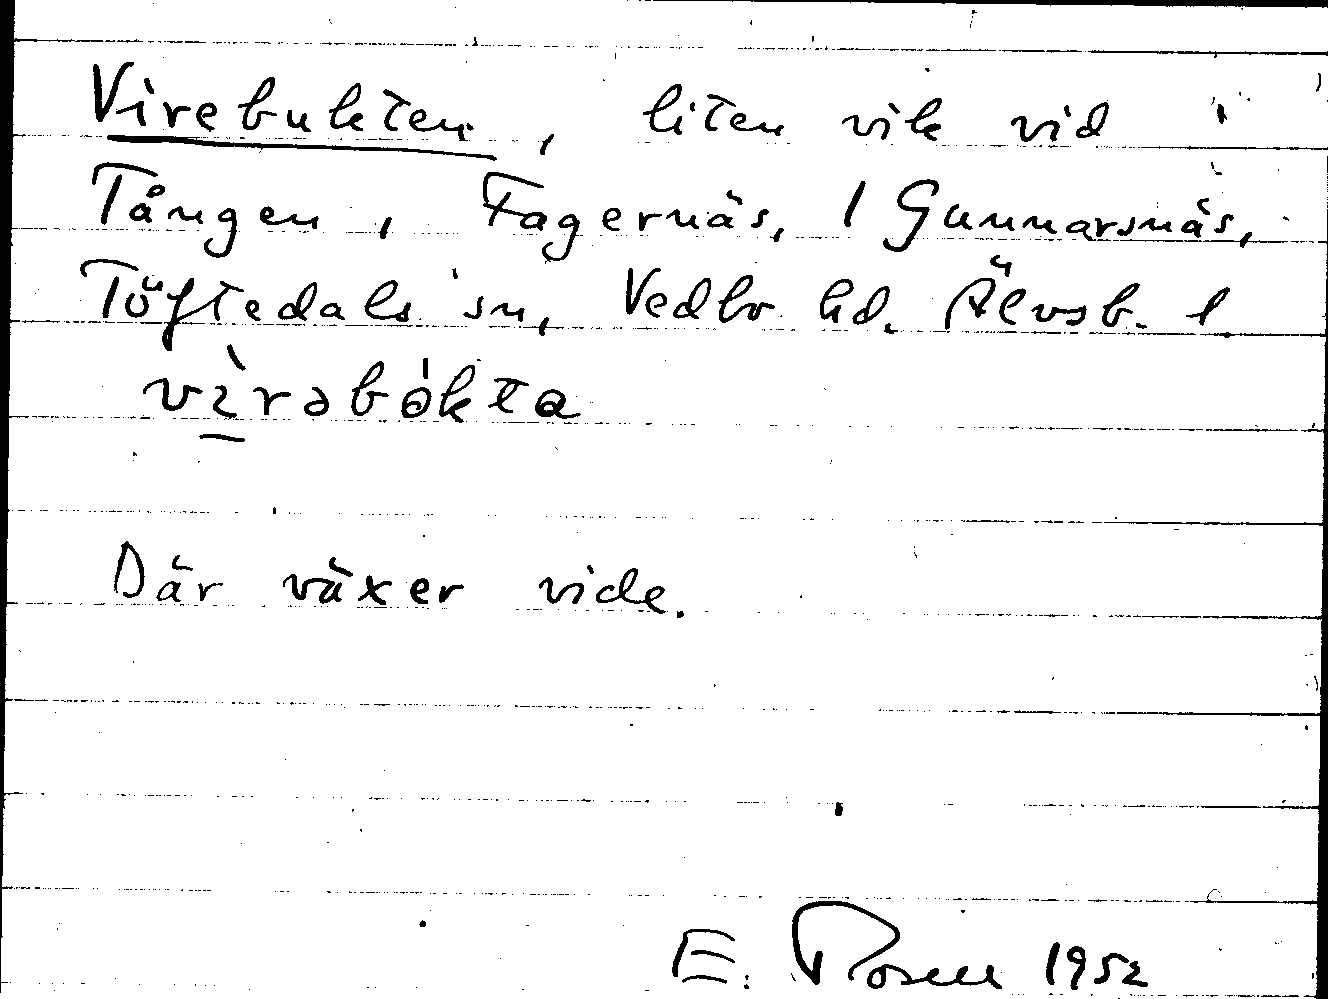 Virebukten, liten vik vid
Tången, Fagernäs, 1 Gunnarsnäs,
Töftedals sn, Vedbo hd. Älvsb. l.
vìrəbókta
Där växer vide.
E. Rosell 1952